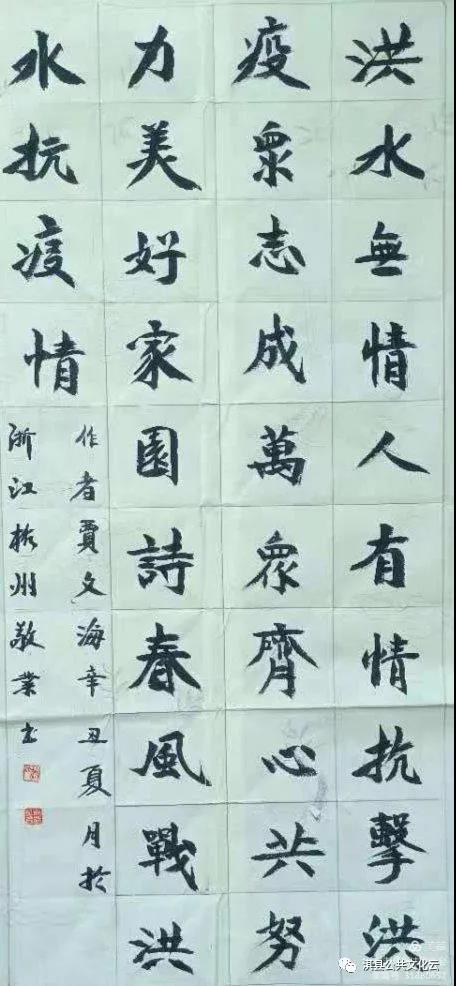 洪水無情人有情抗擊洪
疫眾志成萬眾齊心共努
力美好家園詩春風戰洪
水抗疫情
作者賈文海辛丑夏月於
浙江杭州敬業书
淇县公共文化云